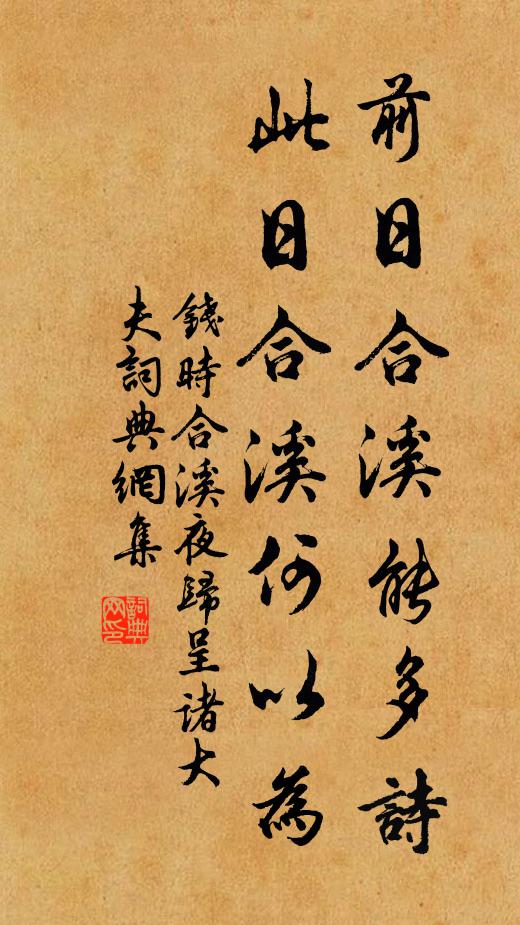 前日合溪能多詩
此日合溪何以為
錢時合溪夜歸呈諸大
夫詞典網集
詞典
网印